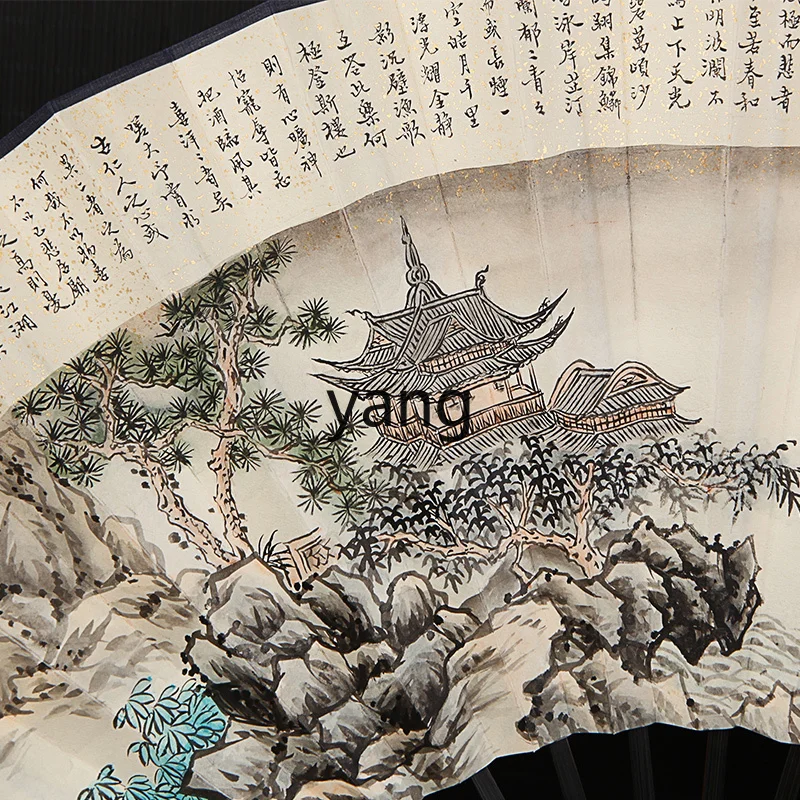 極而悲者
至若春和
明波瀾不
上下天光
碧萬頃沙
翔集錦鱗
泳岸芷汀
蘭郁々青々
而或長煙一
空皓月千里
浮光耀金靜
影沉璧漁歌
互答此樂何
極登斯樓也
則有心曠神
怡寵辱皆忘
把酒臨風其
喜洋々者矣
嗟夫予嘗求
古仁人之心或
異二者之為
何哉不以物喜
不以己悲居廟
之高則憂
江湖
yang